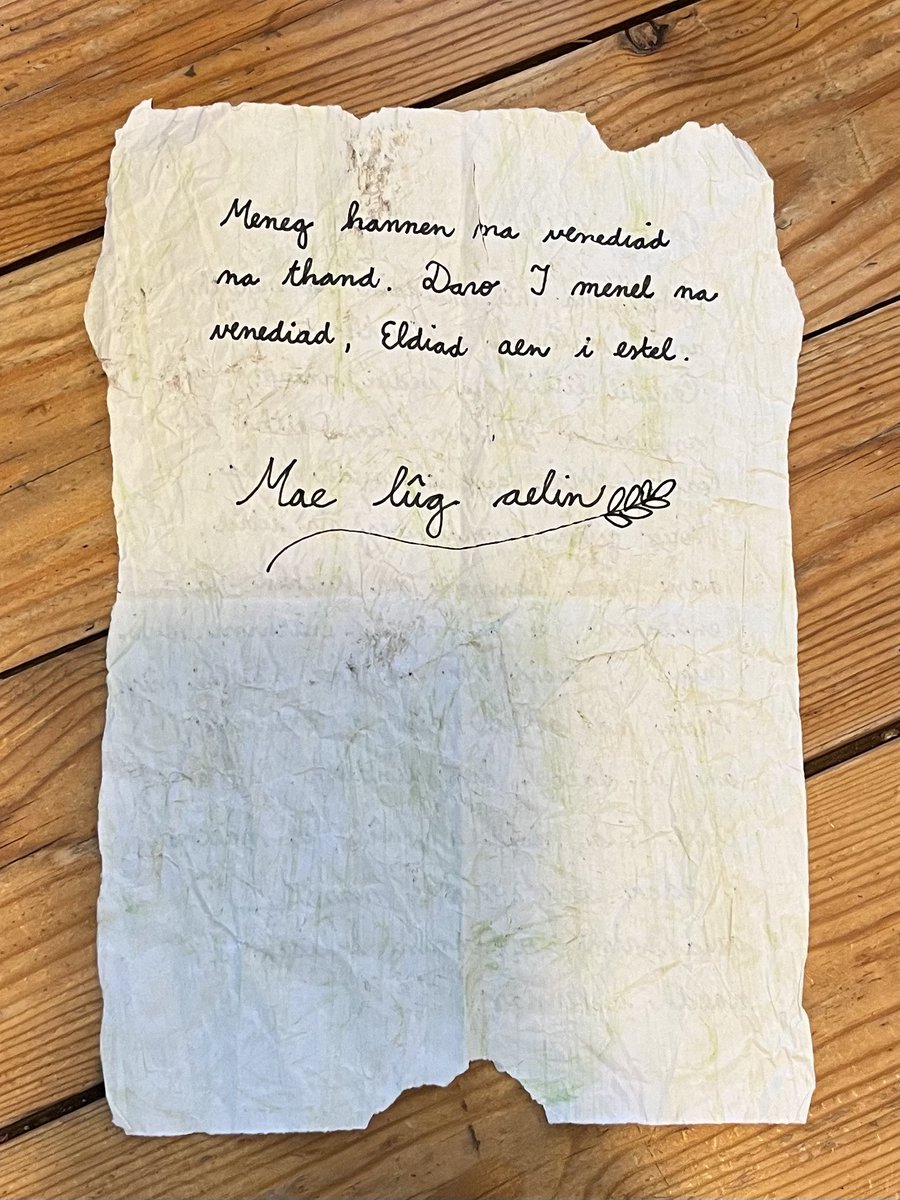 Meneg hannen na venediad
na thand. Daro I menel na
venediad, Eldiad aen i estel.
Mae lûg aelin